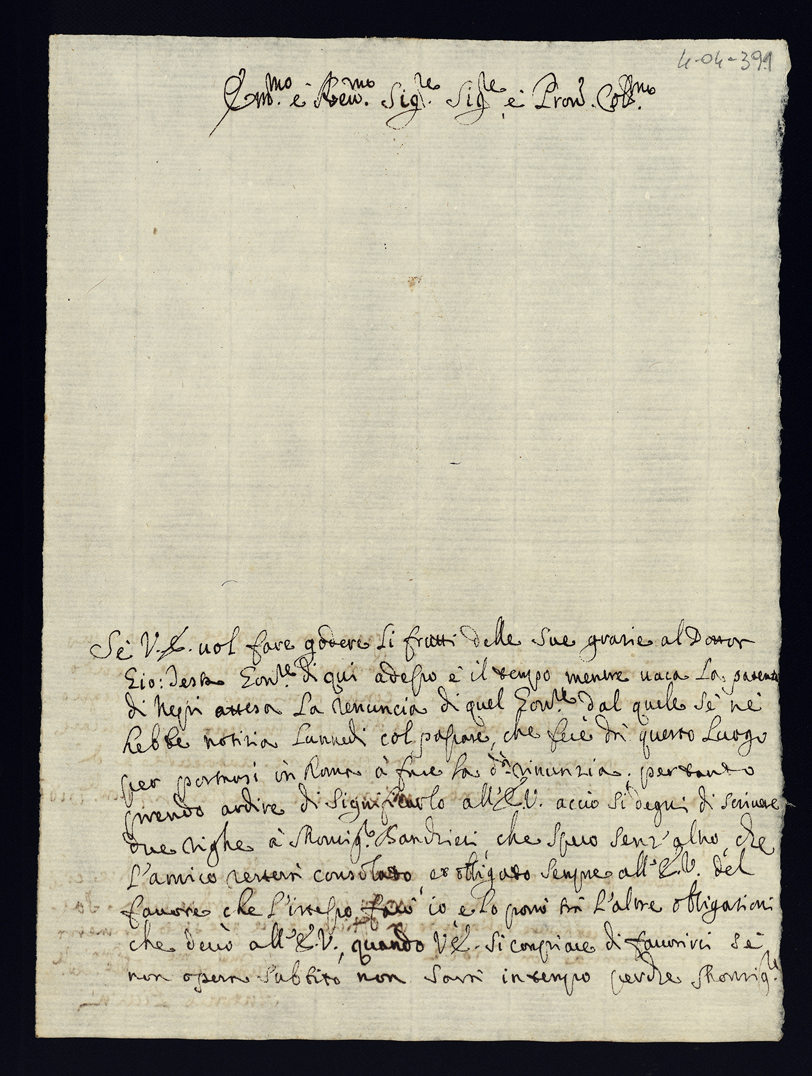 4-04-391
Em.mo e Rev.mo Sig.re Sig.re e Pron. Col.mo
Se V.E. vol fare godere li frutti delle sue grazie al Dottor
Gio: Testa Gov.re di qui adesso è il tempo mentre vaca la
di Nepi attesa la renuncia di quel Gov.re dal quale se ne
hebbe notizia Lunnedi col passare, che fecè da questo Luogo
per portarsi in Roma à fare la d.a rinunzia, pertanto
prendo ardire di significarlo all'E.V. acciò si degni di scrivere
due righe à Monsig.r Bandrieri, che spero senz'altro, che
l'amico resterà consolato et obligato sempre all'E.V. del
favore che l'istesso farò io e lo porrò trà l'altre obligazioni
che devo all'E.V., quando V.E. si compiace di favorirci se
non opera subbito non sarà in tempo perche Monsig.re